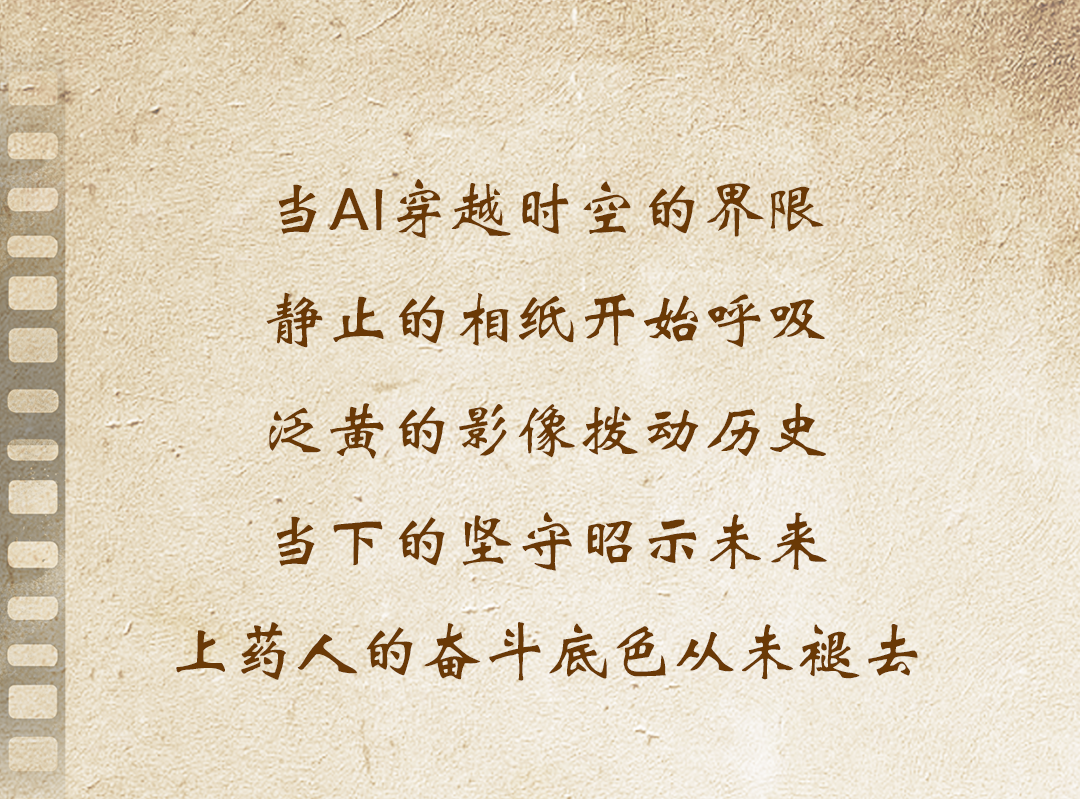 当AI穿越时空的界限
静止的相纸开始呼吸
泛黄的影像拨动历史
当下的坚守昭示未来
上药人的奋斗底色从未褪去